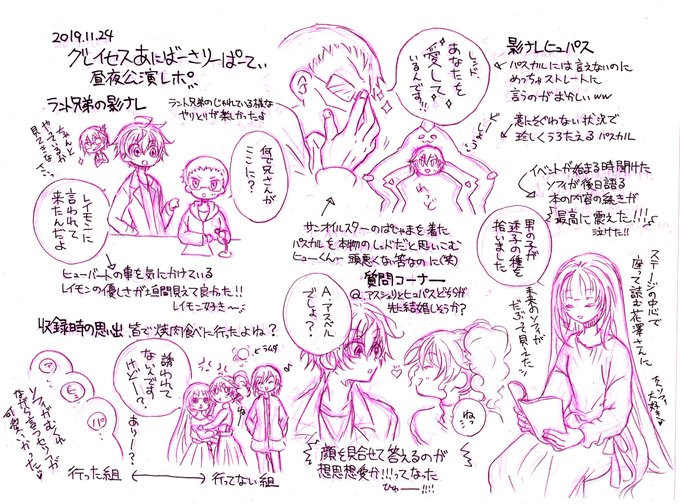 2019.11.24
グレイセスあにばーさりーぱーてぃ
昼夜公演レポ
ラント兄弟の影ナレ
ラント兄弟のじゃれている様な
やりとりが楽しかったよ
ちゃんと
やっているか
見てこないさ
何で兄さんが
ここに？
レイモンに
言われて
来たんだよ
ヒューバートの事を気にかけている
レイモンの優しさが垣間見えて良かった!!
レイモン好き〜
レッド、
あなたを
愛して
いるんです!!
影ナレヒュパス
パスカルには言えないのに
めっちゃストレートに
言うのがまぶしいww
意にそぐわない状況で
珍しくうろたえるパスカル
れっど
サンオイルスターのぱじゃまを着た
パスカルを本物のレッドだと思いこむ
ヒューくん… 頭悪くない筈なのに(笑)
イベントが始まる時開けた
ソフィが後日語る
本の内容の続きが
最高に震えた!!!
泣けた!!
男の子が
迷子の種を
拾いました
未来のソフィが
だぶって見えた!!
ステージの中心で
座って読む花澤さんに
大ソフィ
大好き
質問コーナー
Q.アスシェリとヒュパスどっちが
先に結婚しそうか?
A.アスベル
でしょ？
ねっ
顔を見合せて答えるのが
想思想愛か!!!ってなった
ひゅー!!!!
収録時の思い出 皆で焼肉食べに行ったよね？
誘われて
ないんです
けどー!?
ありー!?
行った組
行ってない組
可愛いかった